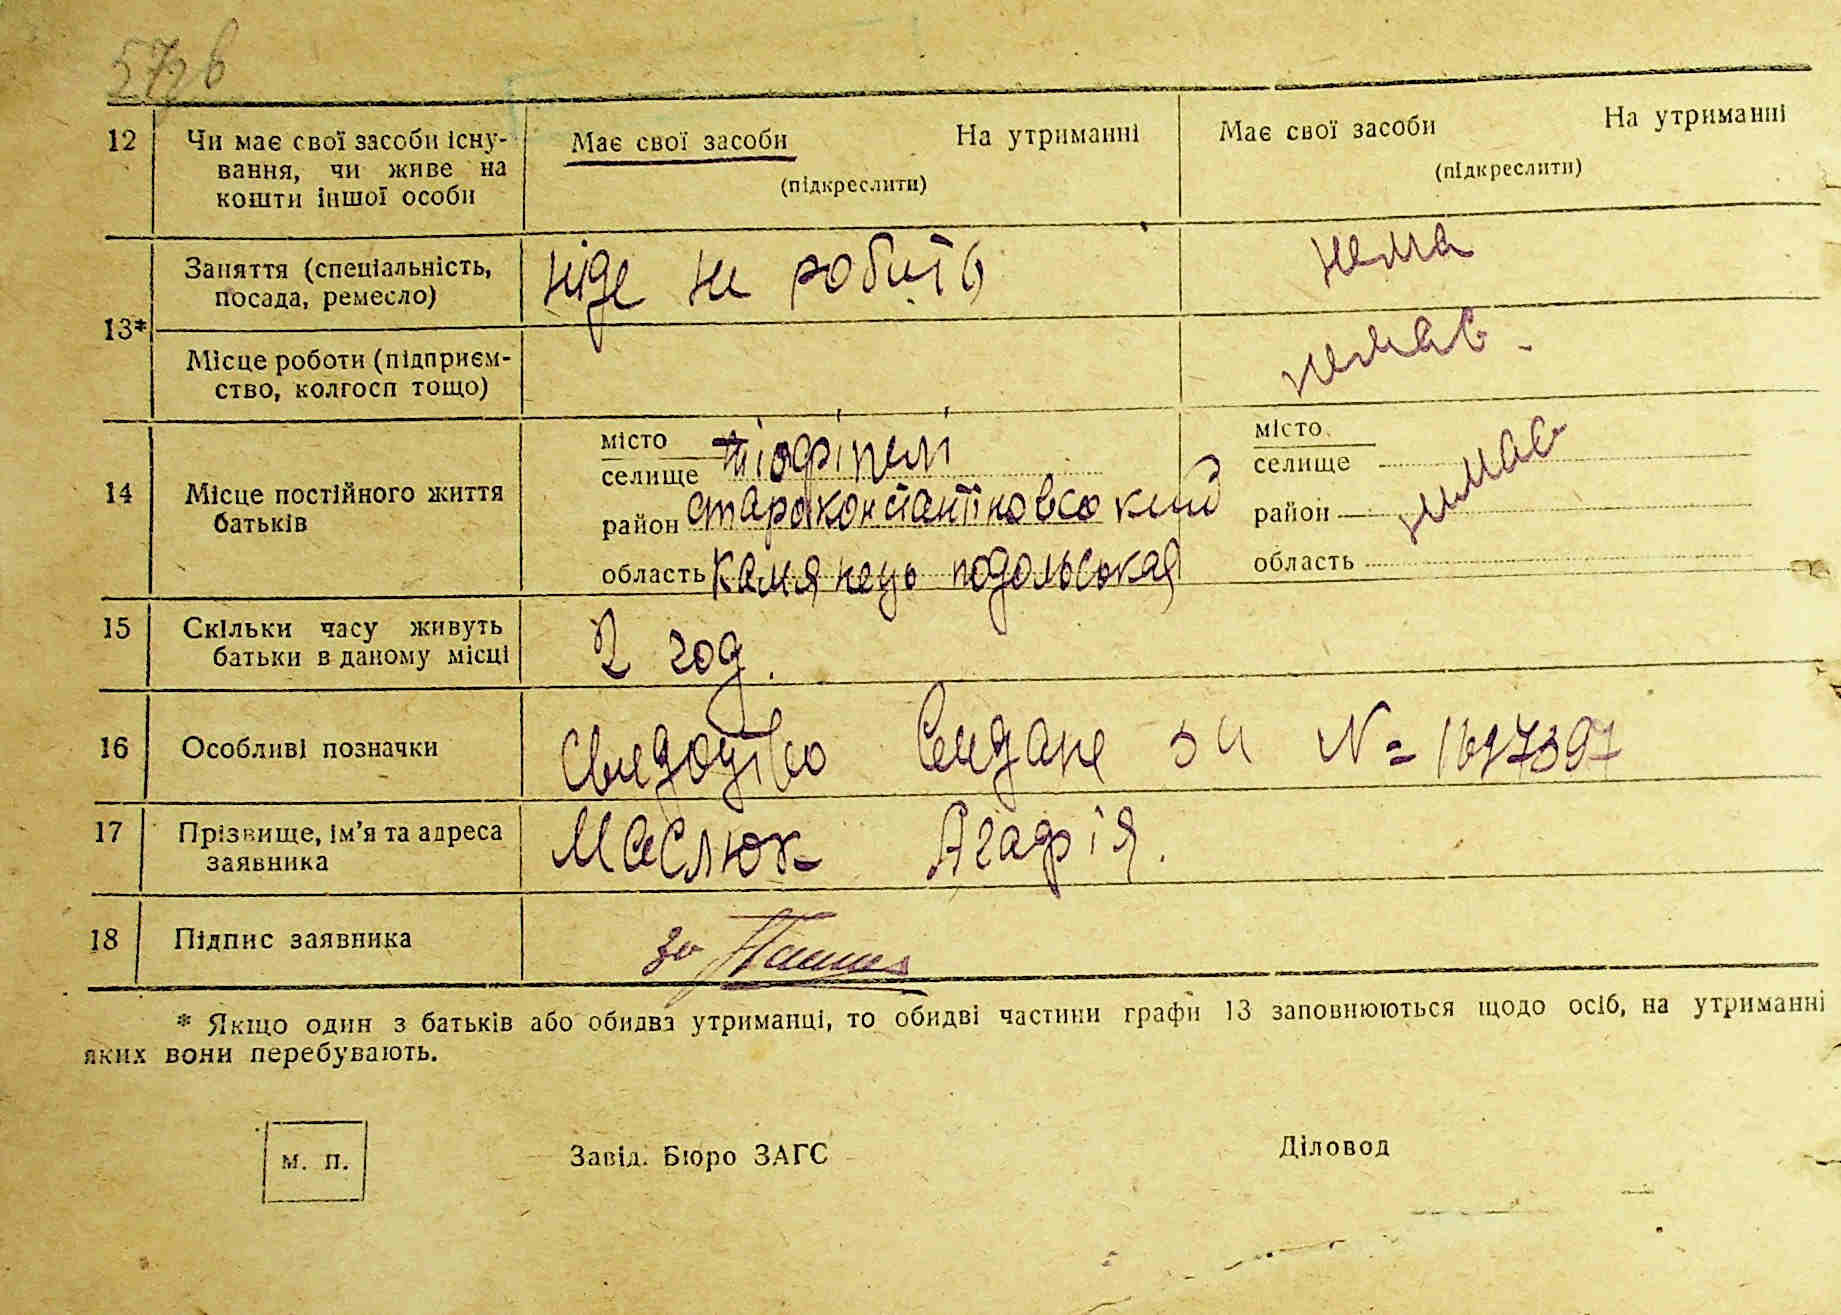 12 Чи має свої засоби існу-
вання, чи живе на
кошти іншої особи
Має свої засоби На утриманні
(підкреслити)
Має свої засоби На утриманні
(підкреслити)
13*
Заняття (спеціальність,
посада, ремесло)
ніде не робить
нема
Місце роботи (підприєм-
ство, колгосп тощо)
немає.
14 Місце постійного життя
батьків
місто
селище тіофіпелі
район староконстантіновсокий
область камянець подольськая
місто
селище
район
область
немає
15 Скільки часу живуть
батьки в даному місці
2 год.
16 Особливі позначки
Свидоцтво № 1697397
17 Прізвище, ім'я та адреса
заявника
Маслюк Агафія.
18 Підпис заявника
за
* Якщо один з батьків або обидва утриманці, то обидві частини графи 13 заповнюються щодо осіб, на утриманні
яких вони перебувають.
М. П.
Завід. Бюро ЗАГС
Діловод